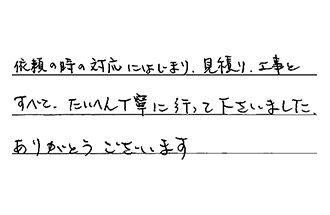 依頼の時の対応にはじまり、見積り、工事と
すべて、たいへん丁寧に行って下さいました。
ありがとうございます